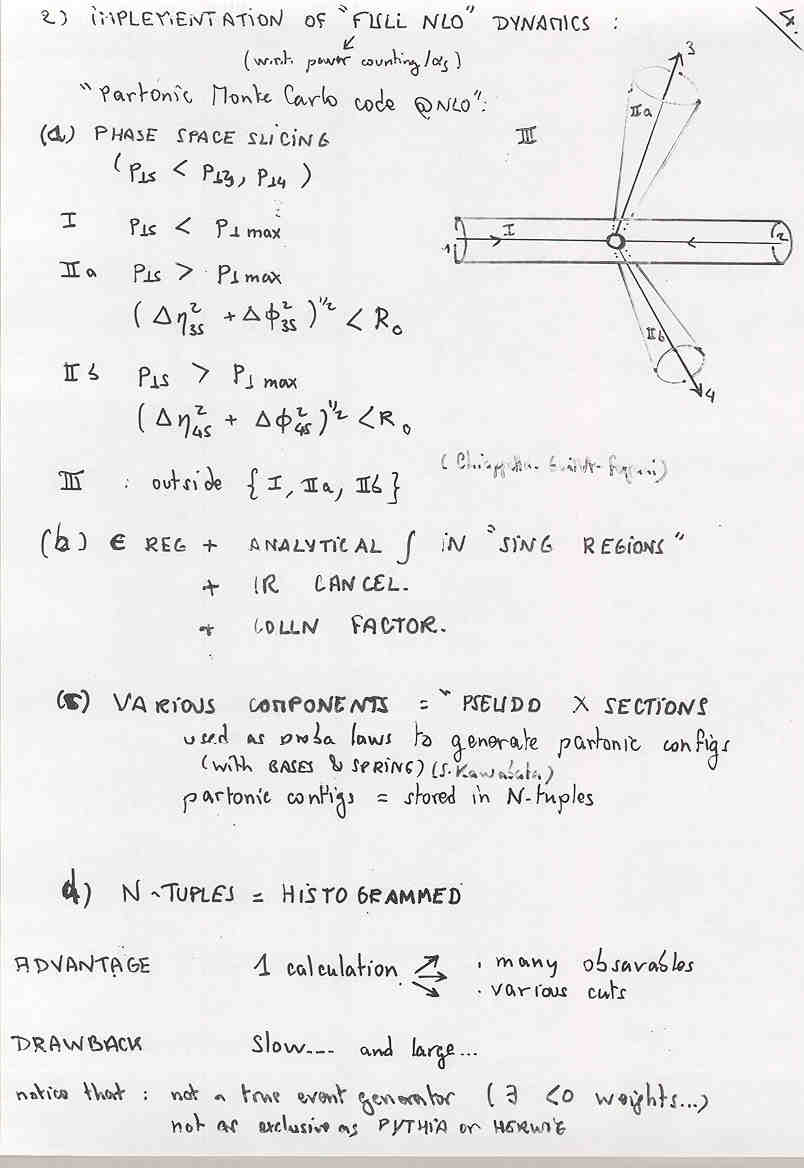 4.
2) IMPLEMENTATION OF "FULL NLO" DYNAMICS :
(w.r.t. power counting/αs)
"Partonic Monte Carlo code @NLO":
(a) PHASE SPACE SLICING
(P⊥5 < P⊥3, P⊥4)
I P⊥5 < P⊥max
IIa P⊥5 > P⊥max
(Δη²35 + Δϕ²35)^1/2 < R₀
IIb P⊥5 > P⊥max
(Δη²45 + Δϕ²45)^1/2 < R₀
III : outside {I, IIa, IIb}
III
3
IIa
1
I
2
IIb
4
(b) ϵ REG + ANALYTICAL ∫ IN "SING REGIONS"
+ IR CANCEL.
+ COLLN FACTOR.
(c) VARIOUS COMPONENTS = "PSEUDO X SECTIONS
used as proba laws to generate partonic configs
(with BASES & SPRING) (S. Kawabata)
partonic configs = stored in N-tuples
d) N-TUPLES = HISTOGRAMMED
ADVANTAGE 1 calculation . many obsavables
. various cuts
DRAWBACK Slow--- and large...
notice that : not a true event generator (∃ <0 weights...)
not as exclusive as PYTHIA or HERWIG